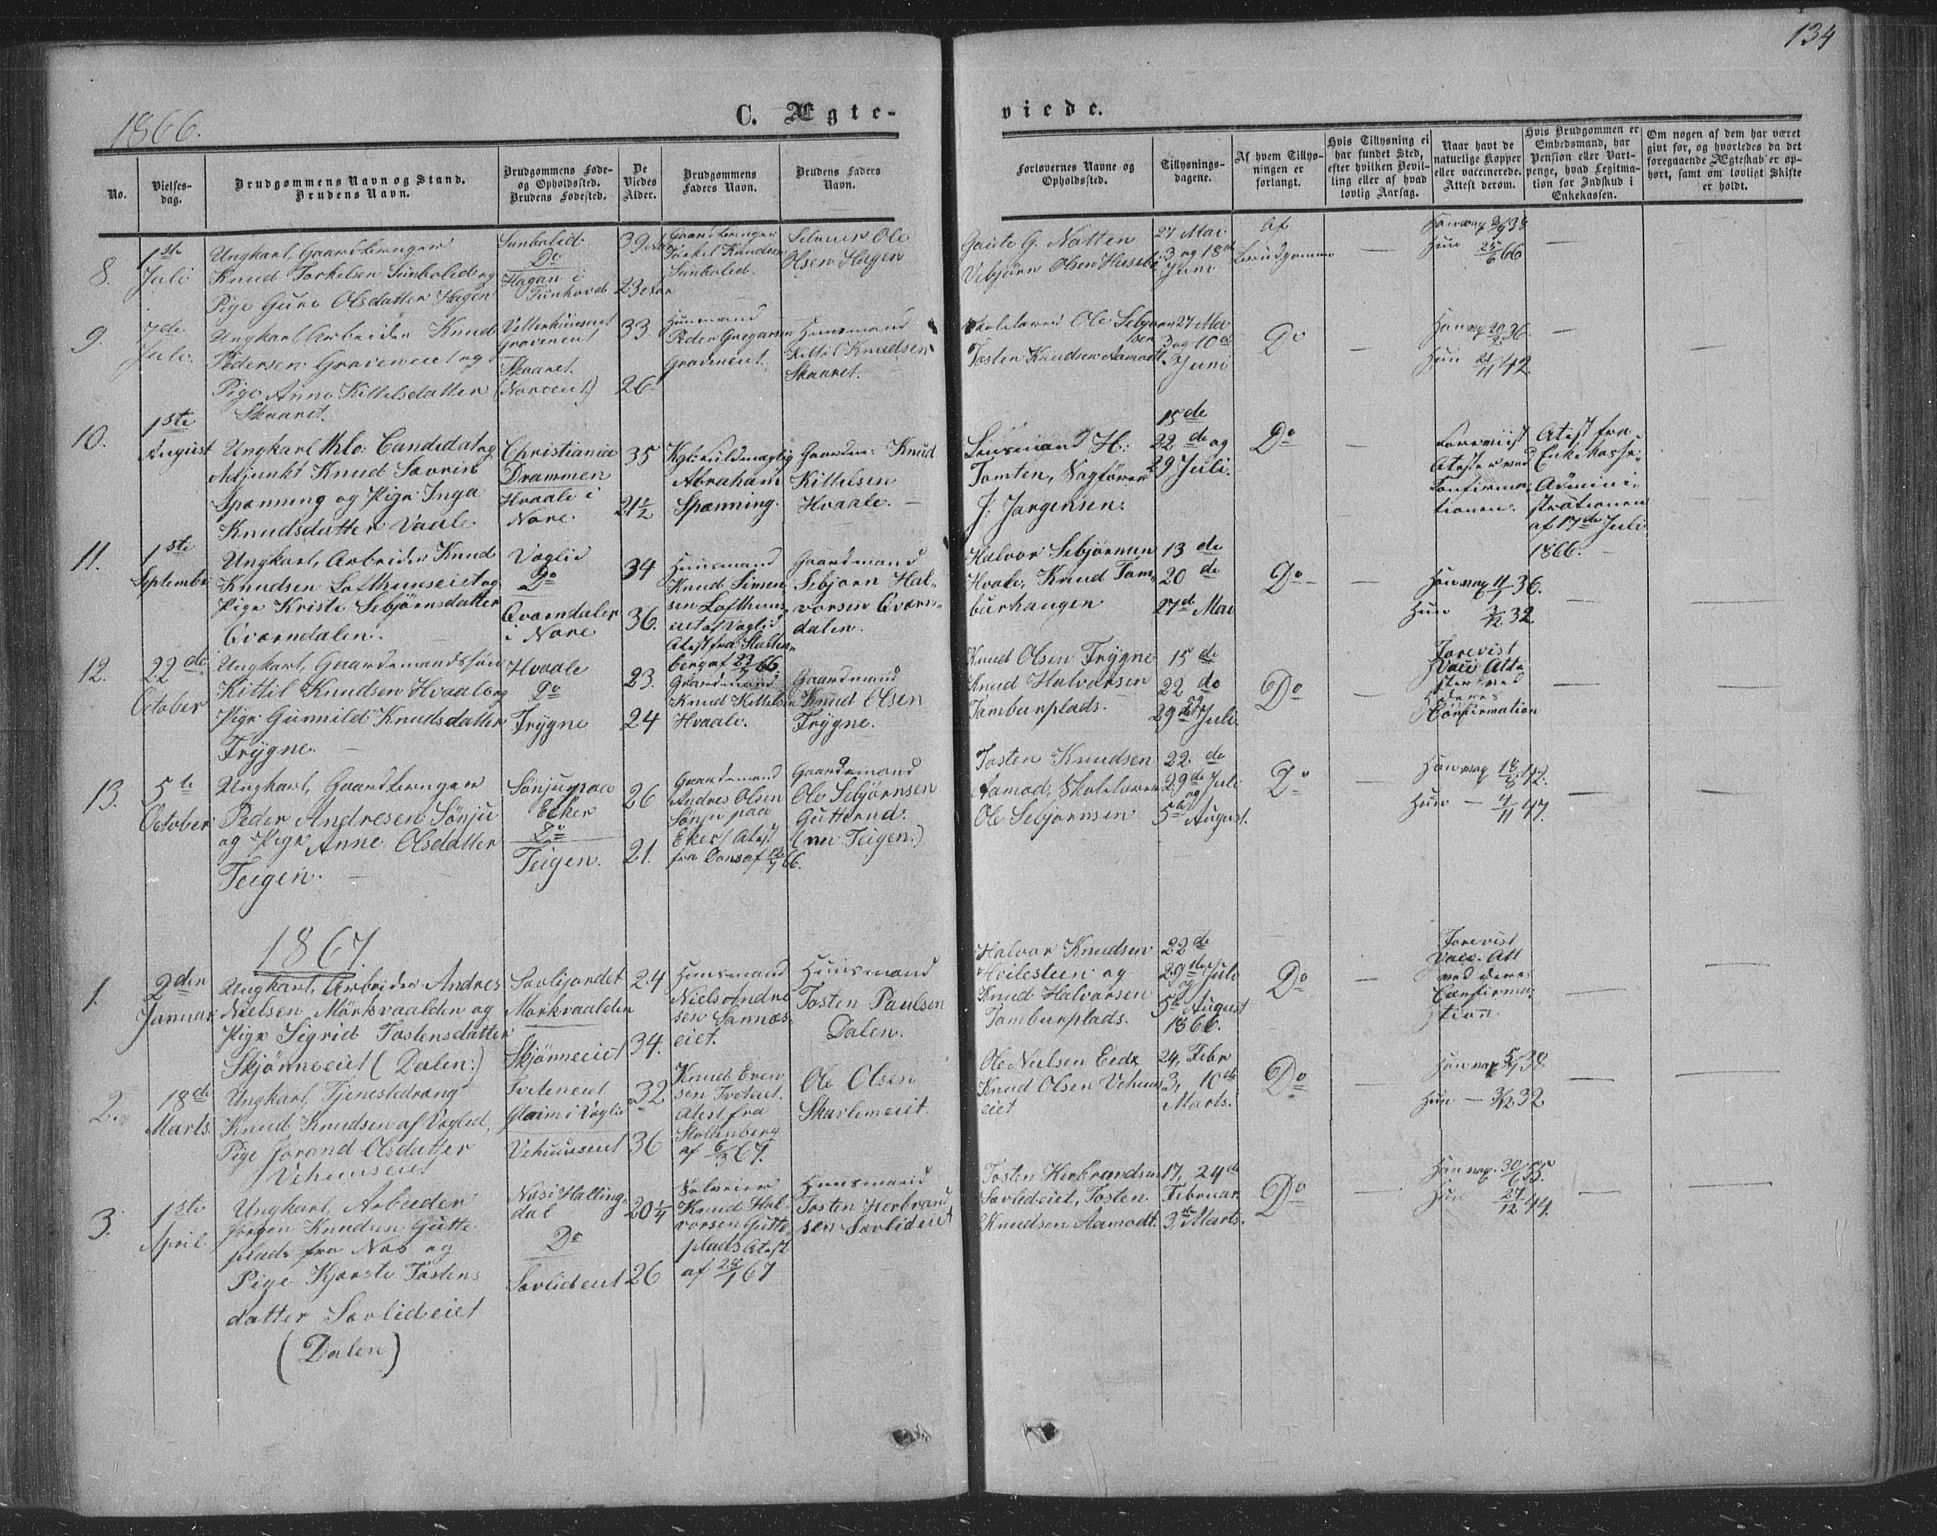 134
1866.
C. Ægte-
viede.
No.
Vielses-
dag.
Brudgommens Navn og Stand.
Brudens Navn.
Brudgommens Føde-
og Opholdssted.
Brudens Fødested.
De
Viedes
Alder.
Brudgommens
Faders Navn.
Brudens Faders
Navn.
Forlovernes Navne og
Opholdssted.
Tillysnings-
dagene.
Af hvem Tillys-
ningen er
forlangt.
Hvis Tillysning ei
har fundet Sted,
efter hvilken Bevil-
ling eller af hvad
lovlig Aarsag.
Naar havt de
naturlige Kopper
eller vaccinerede.
Attest derom.
Hvis Brudgommen er
Embedsmand, har
Pension eller Vart-
penge, hvad Legitima-
tion for Indskud i
Enkekassen.
Om nogen af dem har været
gift før, og hvorledes da det
foregaaende Ægteskab er op-
hørt, samt om lovligt Skifte
er holdt.
8.
1ste
Juli
Ungkarl, Gaardbruger
Knud Torkelsen Sunbølid og
Pige Guri Olsdatter Hagen
Do
Hagan i
Tunhovd
39
23
Torkel Knudsen
Sunbølid.
Ole
Olsen Hagen
Gaute G. Natten
Vebjørn Olsen
27 Mai
3 og 18de
Juni
Af
Brudgommen
—
Hun 25/6 66
—
9.
7de
Juli.
Ungkarl Arbeider Knud
Pedersen Graveneiet og
Pige Anne Kittelsdatter
Skaaret.
Graveneiet
Skaaret.
(Noreeiet)
33
26
Huusmand
Peder Gregarsen
Graveneiet.
Huusmand
Kittil Knudsen
Skaaret.
Skolelærer Ole Sebjørn
sen
Tosten Knudsen Aamodt.
27 Mai
3 og 10de
Juni
Do
—
Hun 21/11 42
—
10.
1ste
August
Ungkarl theo: Candidat og
Adjunkt Knud Søvrin
Spænning og Pige Inga
Knudsdatter Vaale.
Christiania
Drammen
Hvaale i
Nore.
35
21½
Abraham
Spænning.
Gaardm: Knud
Kittelsen
Hvaale. —
Lensmand H:
Tomten,
J: Jørgensen:
15de
22de og
29 Juli.
Do
—
Forevist
Attester ved
Confirma-
tionen.
Atest fra
Enkekasse-
Admini-
strationen
af 17de Juli
1866. —
—
11.
1ste
September
Ungkarl, Arbeider Knud
Knudsen Lofthuuseiet og
Pige Kristi Sebjørnsdatter
Qværndalen.
Vaglid
Do
Qværndalen
i Nore
34
36.
Huusmand
Knud Simen
sen Lofthuus
eiet af Vaglid
Atest fra Stolten-
berg af 23/ 66
Gaardmand
Sebjørn Hal-
vorsen Qværn-
dalen.
Halvor Sebjørnsen
Hvale, Knud Tam-
burhaugen
13de
20de
27d. Mai
Do
—
36.
Hun 3/12 32
—
12.
22de
October
Ungkarl, Gaardmandssøn
Kittil Knudsen Hvaale og
Pige Gunnild Knudsdatter
Frygne. —
Hvaale
Do
Frygne
23.
24
Gaardmand
Knud Kittelsen
Hvaale.
Gaardmand
Knud Olsen
Frygne.
Knud Olsen Frygne
Knud Halvorsen
Tamburplads.
15de
22do
og
29de Juli
Do
—
Forevist
Vacc. Atte
ster ved
Confirmation
—
13.
5te
October
Ungkarl, Gaardbruger
Peder Andresen Sønju
og Pige Anne Olsdatter
Teigen. —
Sønju paa
Eker
Do
Teigen.
26
21.
Gaardmand
Andres Olsen
Sønju paa
Eker. Atest
66.
Gaardmand
Ole Sebjørnsen
Gutterud.
(nu Teigen.)
Tosten Knudsen
Aamod, Skolelærer
Ole Sebjørnsen
22de
29de Juli
og
5te August.
Do
—
18/8 42.
Hun — 4/11 47.
—
1867.
1.
2den
Januar
Ungkarl, Arbeider Andres
Nielsen Mørkvaalden og
Pige Sigrid Tostensdatter
Skjønneeiet (Dalen:)
Mørkvaalden
Skjønneeiet
24
34.
Huusmand
Niels Andre
sen Sannæs-
eiet.
Huusmand
Tosten Paulsen
Dalen.
Halvor Knudsen
Heilesteen og
Knud Halvorsen
Tamburplads.
22de
29de Juli
og
5te August
1866.
Do
—
Forevist
Vacc. Att
ved deres
Confirma-
tion.
—
2.
18de
Marts.
Ungkarl, Tjenestedreng
Knud Knudsen af Vaglid,
Pige Jorand Olsdatter
Vehuuseiet
Tveteneiet
Vehuuseiet
32
36
Knud Even
sen Tveteiet.
Atest fra
Stoltenberg
af 6/3 67.
Ole Olsen
Ole Nielsen Eide
Knud Olsen Vehuus
eiet
24, Febr
3, 10de
Marts.
Do
—
Hun — 3/12 32
—
3.
1ste
April.
Ungkarl, Arbeider
Jørgen Knudsen Gutte
plads fra Næs og
Pige Kjersti Tostens
datter Sørlideeiet
(Dalen)
Næs i Halling
dal
Do
Sørlideeiet
20¼
26
Selveier
Knud Hal
vorsen Gutte-
plads Atest
af 28/1 67
Huusmand
Tosten Herbrand
sen Sørlideeiet
Tosten Herbrandsen
Sørlideeiet, Tosten
Knudsen Aamodt.
17, 24de
Februar
3de Marts.
Do
—
30/6 35.
Hun 27/12 44.
—